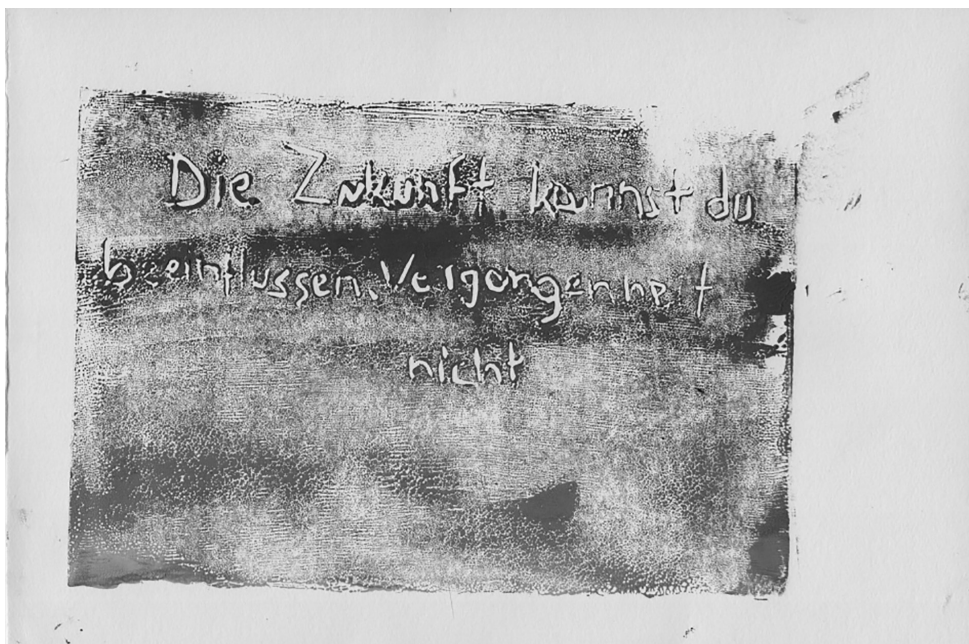 Die Zukunft kannst du
beeinflussen. Vergangenheit
nicht